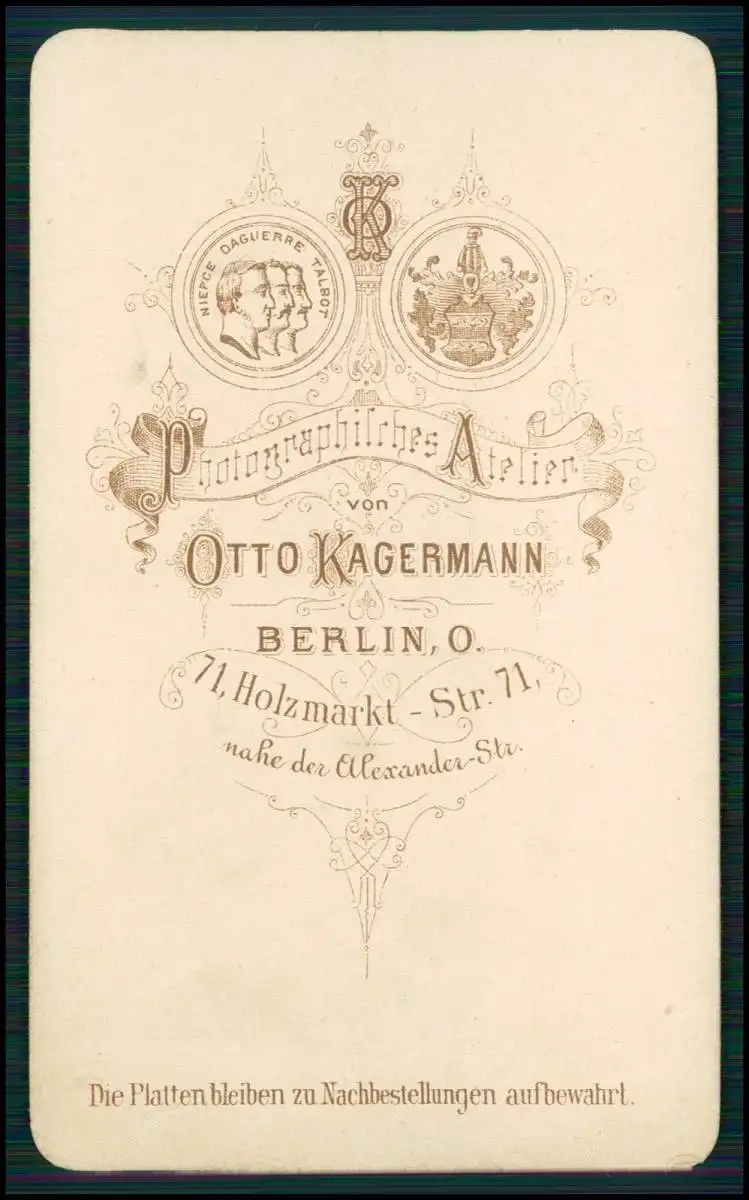 OK
NIEPCE DAGUERRE TALBOT
Photographiſches Atelier
von
OTTO KAGERMANN
BERLIN, O.
71, Holzmarkt - Str. 71,
nahe der Alexander-Str.
Die Platten bleiben zu Nachbestellungen aufbewahrt.